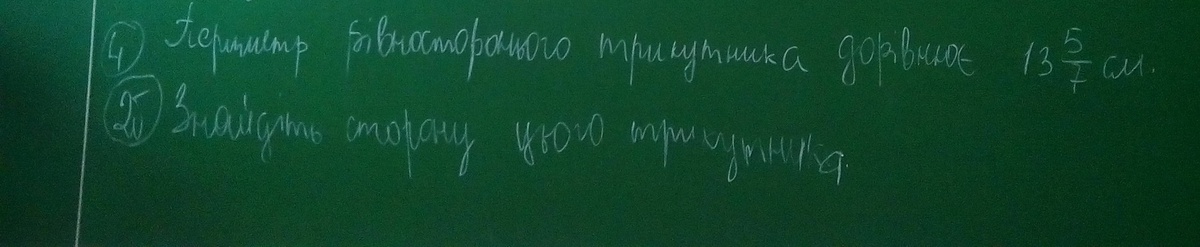 4 Периметр рівностороннього трикутника дорівнює 13 5/7 см.
2б Знайдіть сторону цього трикутника.